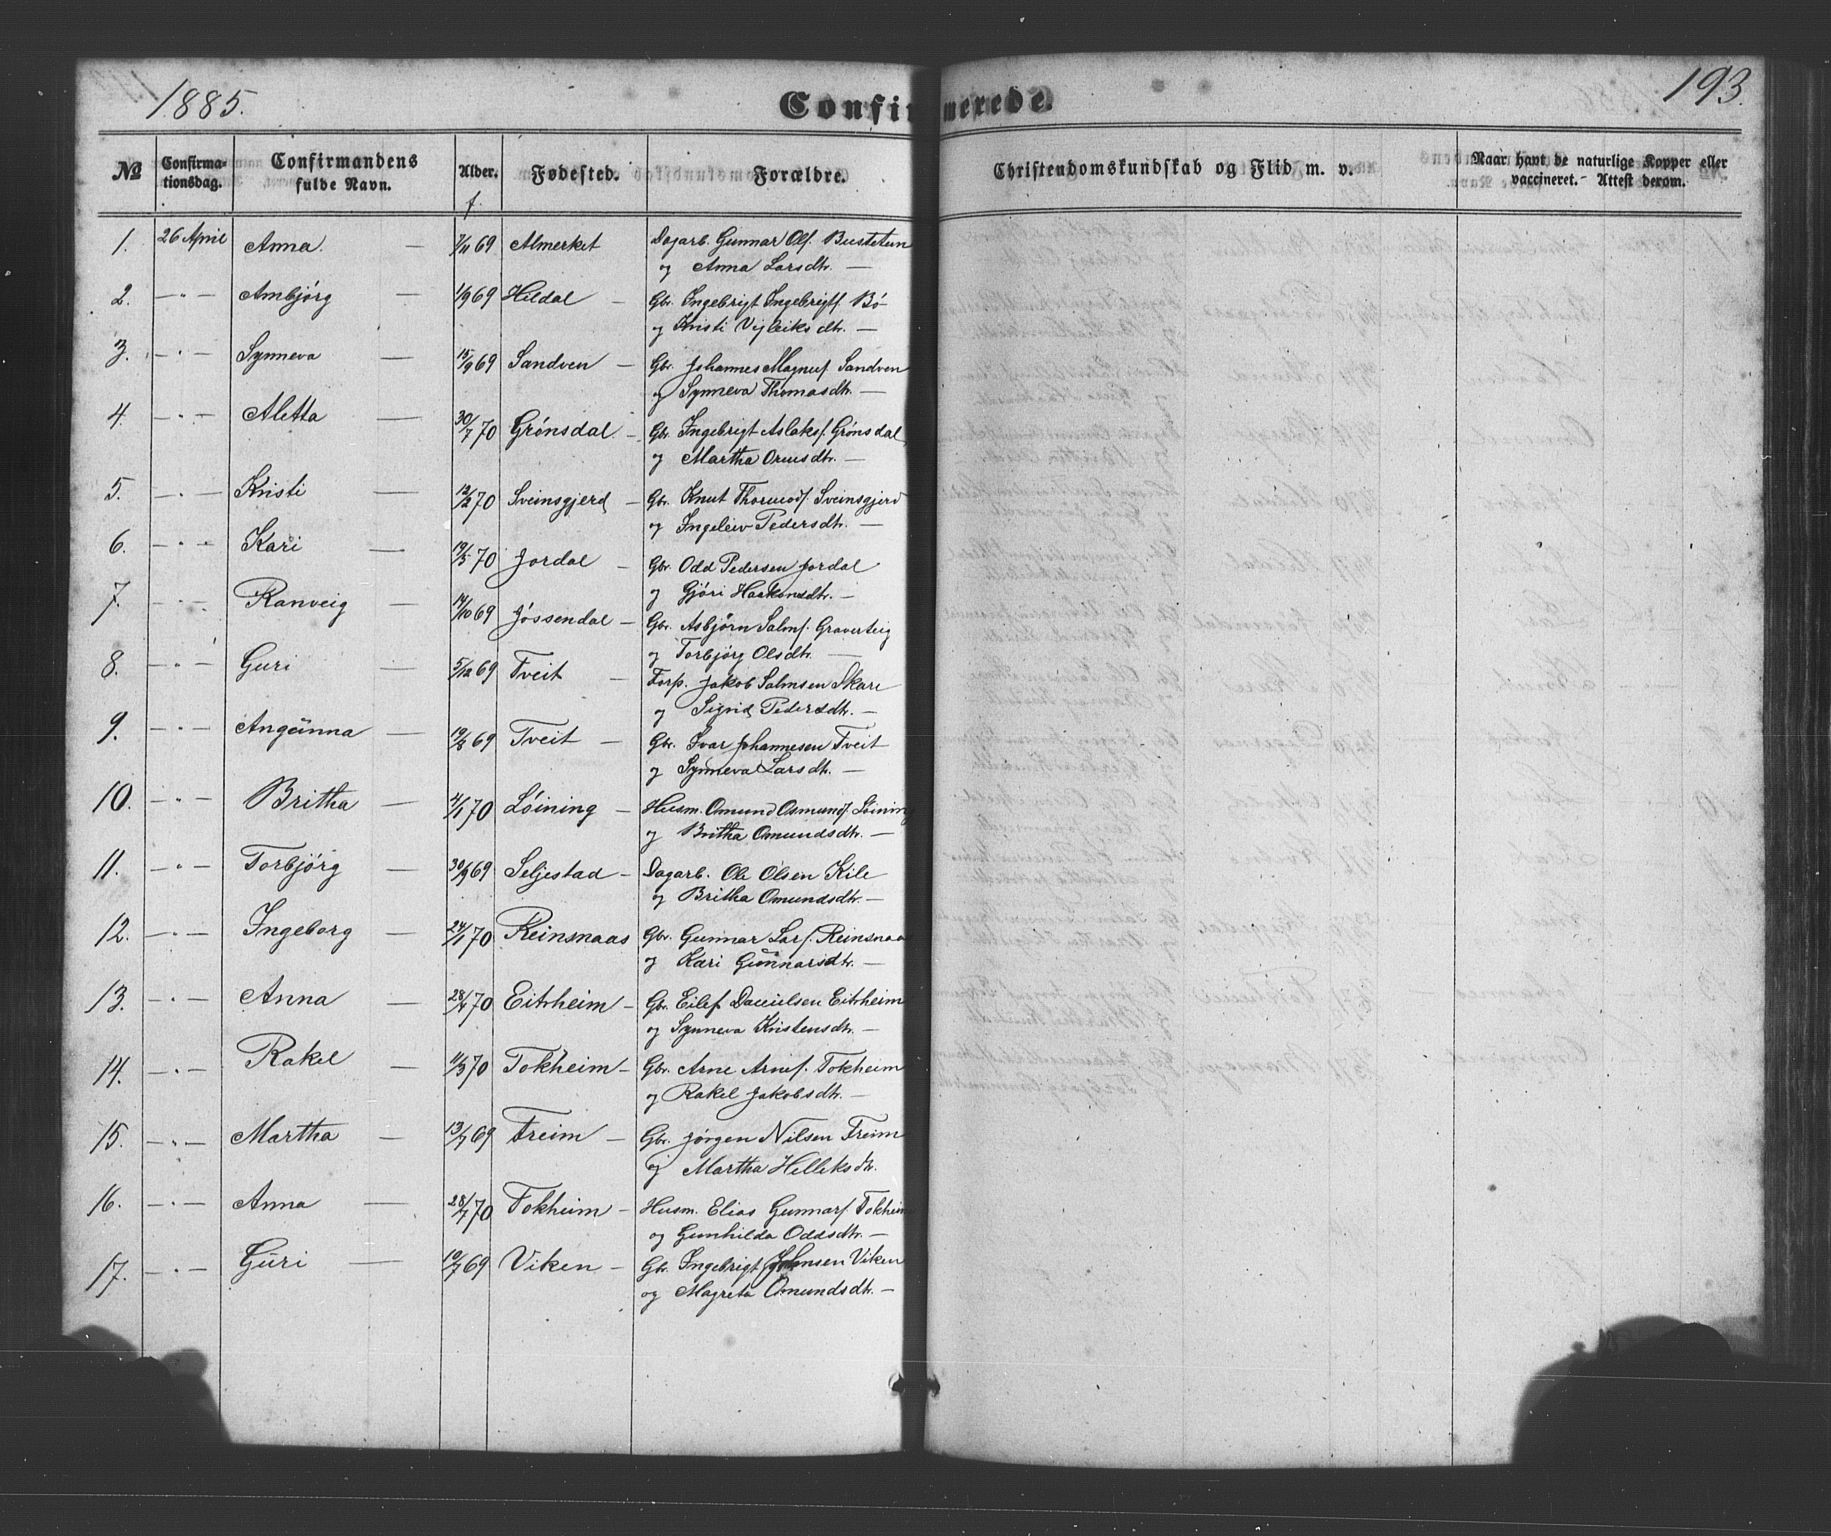 1885.
193.
Confirmerede.
№ Confirma-tionsdag. Confirmandens fulde Navn. Alder. Fødested. Forældre. Christendomskundskab og Flid m. v. Naar havt de naturlige Kopper eller vaccineret. - Attest derom.
f.
1. 26 April Anna. — 7/11 69 Almerket Dagarb. Gunnar Ols. Bustetun
og Anna Larsdtr. —
2. — " — Ambjörg — 1/9 69 Hildal — Gbr. Ingebrigt Ingebrigts. Bö
og Kristi Vigleiksdtr. —
3. — " — Synneva — 15/9 69 Sandven — Gbr. Johannes Magnus. Sandven
og Synneva Thomasdtr. —
4. — " — Aletta — 30/7 70 Grönsdal — Gbr. Ingebrigt Aslaks. Grönsdal
og Martha Ormsdtr. —
5. — " — Kristi — 12/2 70 Sveinsgjerd — Gbr. Knut Thormods. Sveinsgjerd
og Ingeleiv Pedersdtr. —
6. — " — Kari — 19/5 70 Jordal — Gbr. Odd Pedersen Jordal
og Gjöri Haakonsdtr. —
7. — " — Ranveig — 14/10 69 Jössendal — Gbr. Asbjörn Salms. Graverteig
og Torbjörg Olsdtr. —
8. — " — Guri — 5/12 69 Tveit — Forp. Jakob Salmsen Skare
og Sigrid Pedersdtr. —
9. — " — Angunna — 69 Tveit — Gbr. Ivar Johannesen Tveit
og Synneva Larsdtr. —
10. — " — Britha — 4/1 70 Löining — Husm. Omund Osmunds. Löining
og Britha Omundsdtr. —
11. — " — Torbjörg — 30/9 69 Seljestad — Dagarb. Ole Olsen Kile
og Britha Omundsdtr. —
12. — " — Ingeborg — 24/1 70 Reinsnaas Gbr. Gunnar Lars. Reinsnaas
og Kari Gunnarsdtr. —
13. — " — Anna — 28/4 70 Eitrheim — Gbr. Eilef Danielsen Eitrheim
og Synneva Kristensdtr. —
14. — " — Rakel — 11/3 70 Tokheim — Gbr. Arne Arnes. Tokheim
og Rakel Jakobsdtr. —
15. — " — Martha — 13/7 69 Freim — Gbr. Jörgen Nilsen Freim
og Martha Helleksdtr.
16. — " — Anna — 28/7 70 Tokheim — Husm. Elias Gunnars. Tokheim
og Gunhilda Oddsdtr. —
17. — " — Guri — 10/7 69 Viken — Gbr. Ingebrigt Johnsen Viken
og Magreta Omundsdtr. —